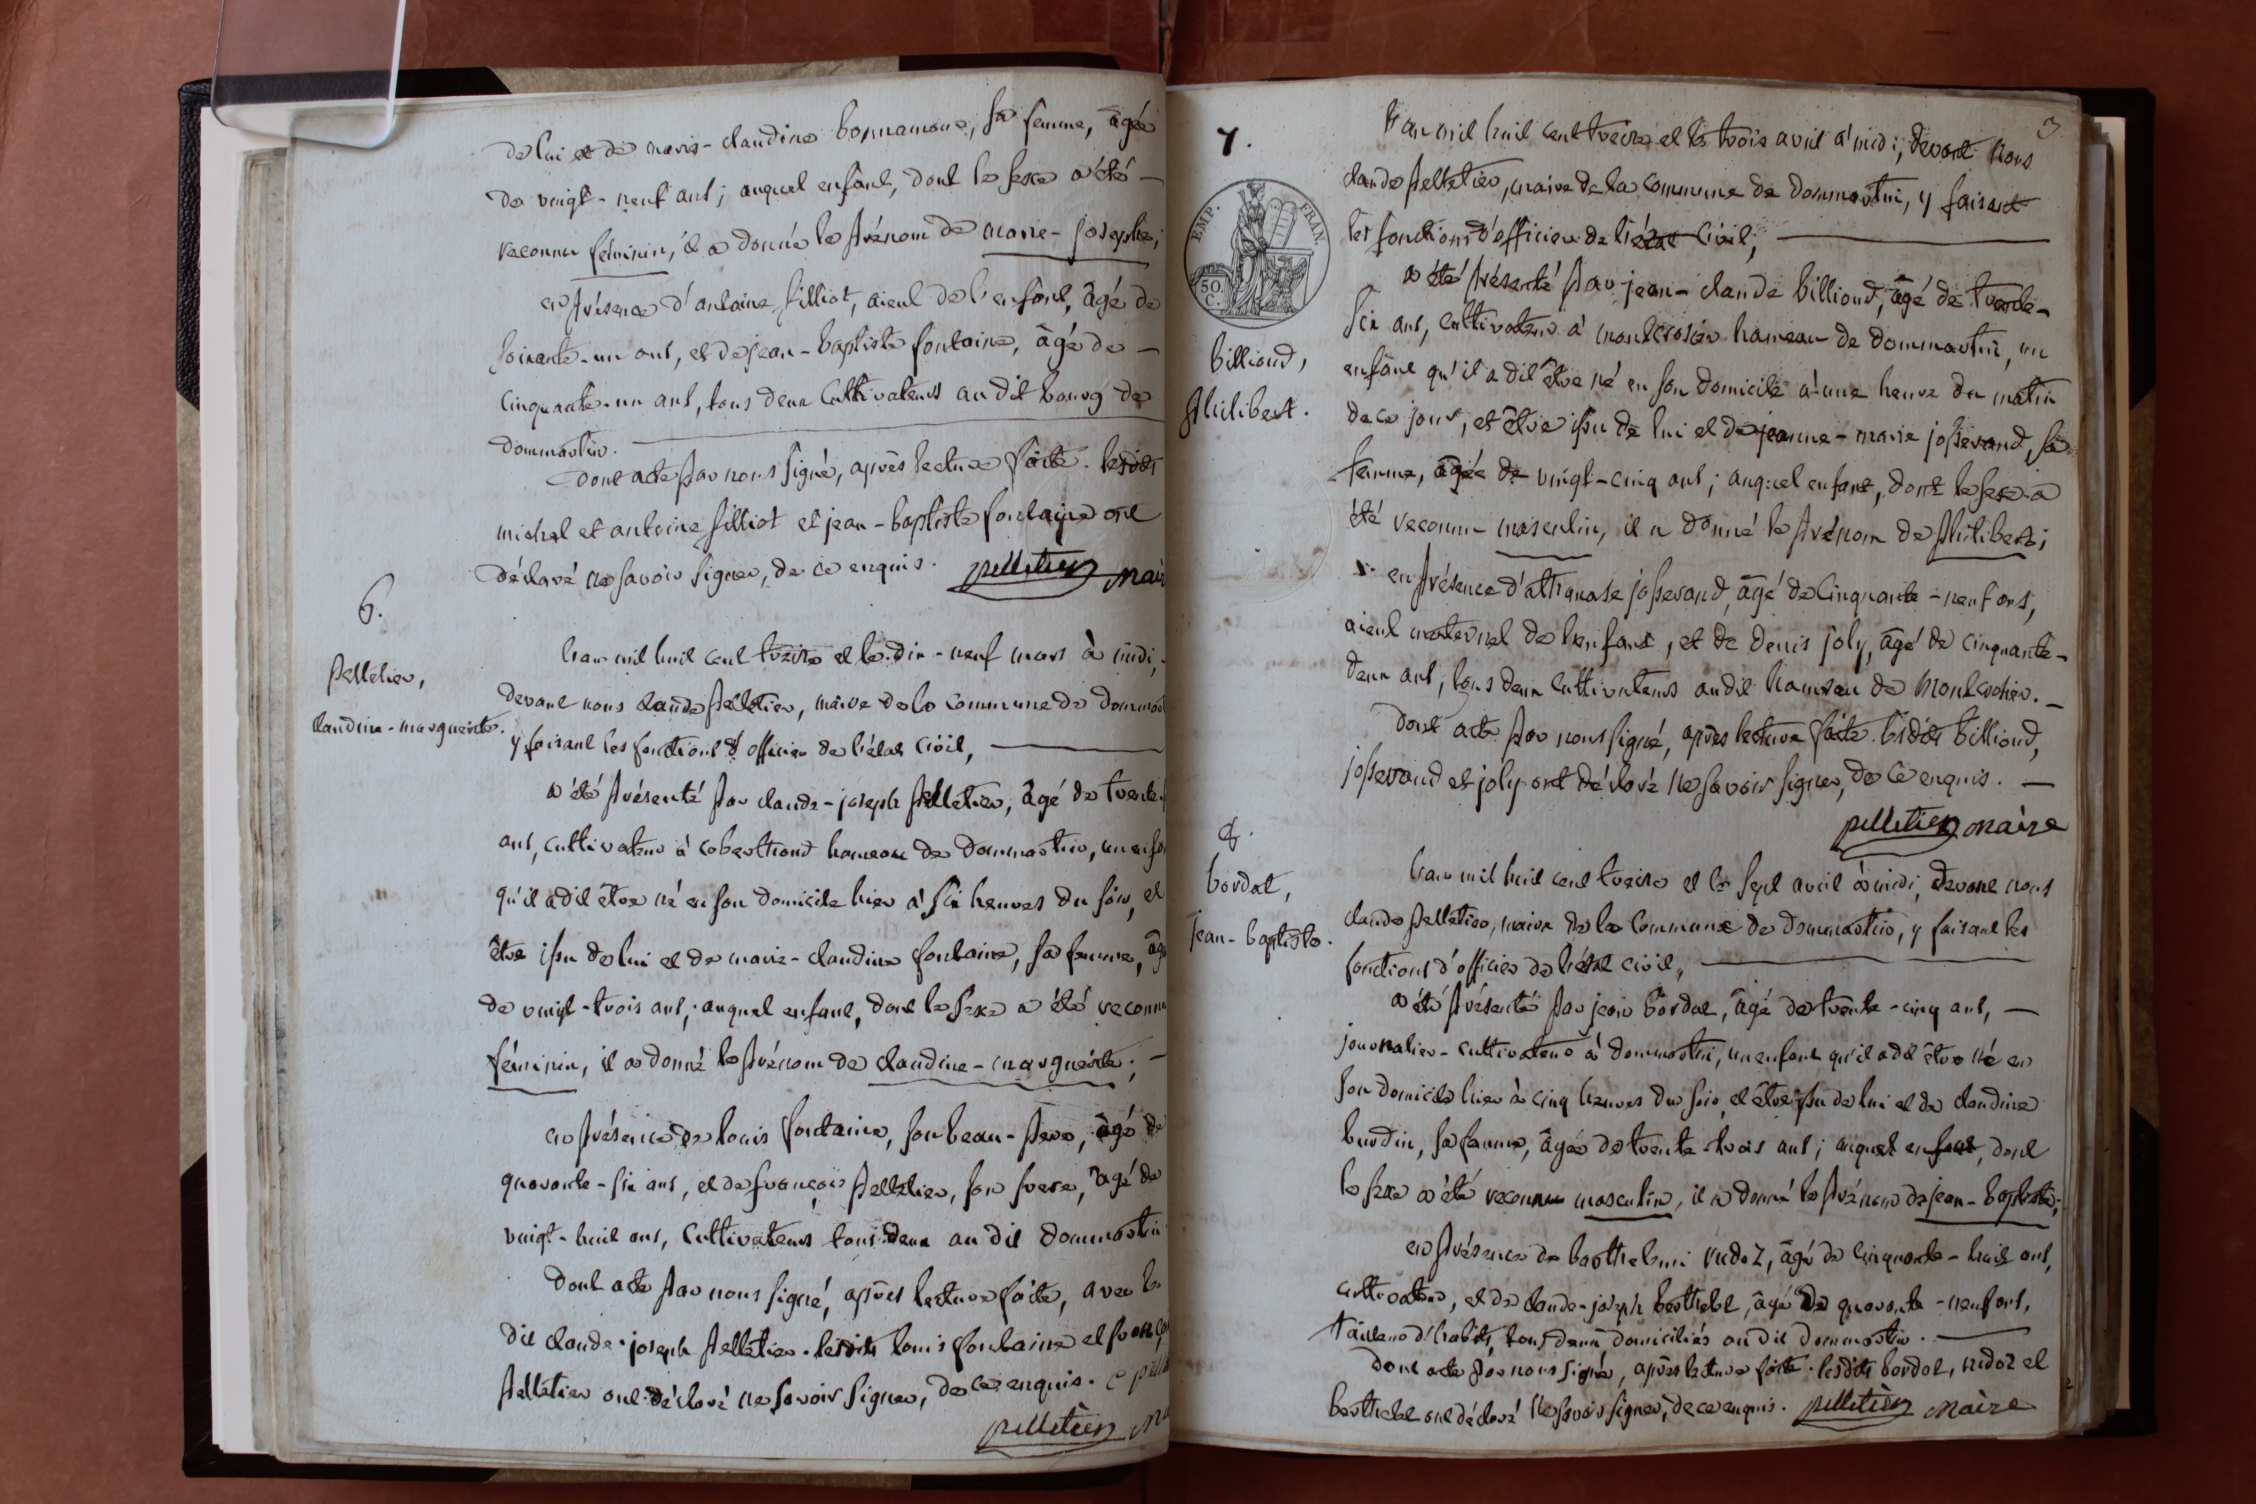 de lui et de marie-claudine bonnamour, sa femme, âgée
de vingt-neuf ans; auquel enfant, dont le sexe a été —
reconnu féminin, il a donné le prénom de marie-josephe;
en présence d'antoine filliot, aieul de l'enfant, âgé de
soixante-un ans, et de jean-baptiste fontaine, âgé de —
cinquante-un ans, tous deux cultivateurs au dit bourg de
dommartin.
Dont acte par nous signé, après lecture faite. lesdits
michel et antoine filliot et jean-baptiste fontaine ont
déclaré ne savoir signer, de ce enquis. pelletier mair
6.
pelletier,
claudine-marguerite.
L'an mil huit cent treize et le dix-neuf mars à midi,
devant nous claude pelletier, maire de la commune de dommart
y faisant les fonctions d'officier de l'état civil,
a été présenté par claude-joseph pelletier, âgé de trente
ans, cultivateur à hameau de dommartin, un enfa
qu'il a dit être né en son domicile hier à six heures du soir, et
être issu de lui et de marie-claudine fontaine, sa femme, âg
de vingt-trois ans; auquel enfant, dont le sexe a été reconnu
féminin, il a donné le prénom de claudine-marguerite; —
en présence de louis fontaine, son beau-pere, âgé de
quarante-six ans, et de françois pelletier, son frere, âgé de
vingt-huit ans, cultivateurs tous deux au dit dommartin
Dont acte par nous signé, après lecture faite, avec le
dit claude-joseph pelletier. lesdits louis fontaine et franço
pelletier ont déclaré ne savoir signer, de ce enquis.
pelletier ma
3
7.
EMP. FRAN.
50. C.
billioud,
philibert.
L'an mil huit cent treize et le trois avril à midi; devant nous
claude pelletier, maire de la commune de dommartin, y faisant
les fonctions d'officier de l'état civil;
a été présenté par jean-claude billioud, âgé de trente-
six ans, cultivateur à montcrosier hameau de dommartin, un
enfant qu'il a dit être né en son domicile à une heure du matin
de ce jour, et être issu de lui et de jeanne-marie josserand, sa
femme, âgée de vingt-cinq ans; auquel enfant, dont le sexe a
été reconnu masculin, il a donné le prénom de philibert;
en présence d'athanase josserand, âgé de cinquante-neuf ans,
aieul maternel de l'enfant, et de denis joly, âgé de cinquante-
deux ans, tous deux cultivateurs au dit hameau de —
Dont acte par nous signé, après lecture faite. lesdits billioud,
josserand et joly ont déclaré ne savoir signer, de ce enquis. —
pelletier maire
8.
bordat,
jean-baptiste.
L'an mil huit cent treize et le sept avril à midi, devant nous
claude pelletier, maire de la commune de dommartin, y faisant les
fonctions d'officier de l'état civil,
a été présenté par jean bordat, âgé de trente-cinq ans, —
journalier-cultivateur à dommartin, un enfant qu'il a dit être né en
son domicile hier à cinq heures du soir, et être issu de lui et de claudine
burdin, sa femme, âgée de trente-trois ans; auquel enfant, dont
le sexe a été reconnu masculin, il a donné le prénom de jean-baptiste;
en présence de barthelemi nidoz, âgé de cinquante-huit ans,
cultivateur, et de claude-joseph berthelet, âgé de quarante-neuf ans,
tailleur d'habits, tous deux domiciliés au dit dommartin. —
Dont acte par nous signé, après lecture faite. lesdits bordat, nidoz et
berthelet ont déclaré ne savoir signer, de ce enquis. pelletier maire